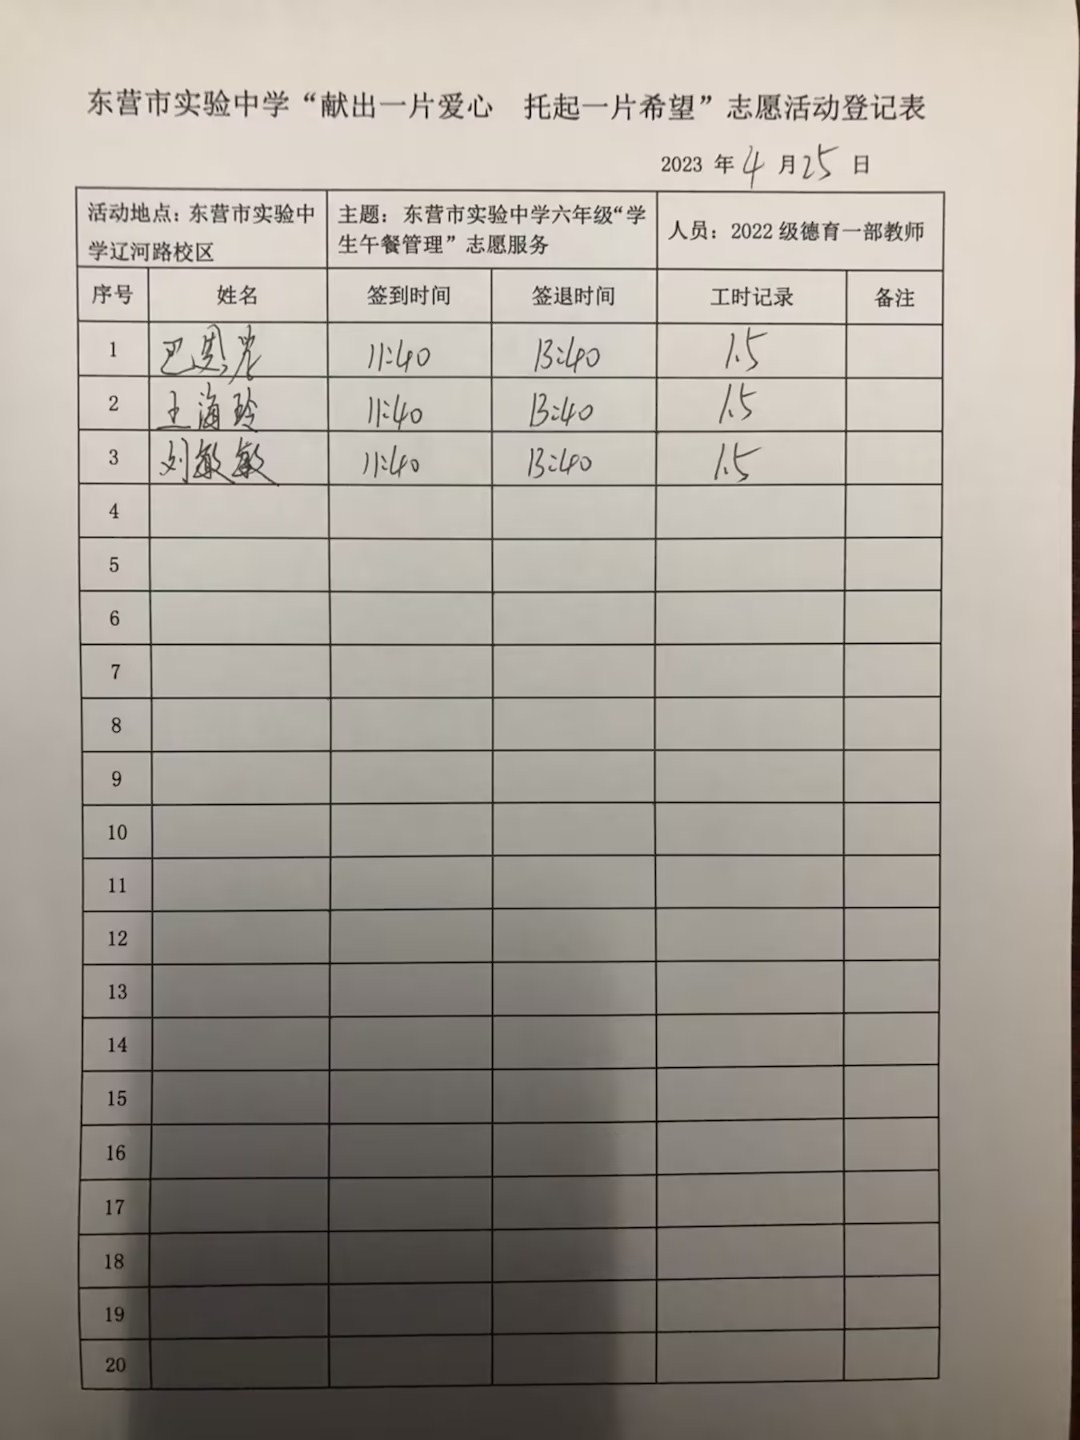 东营市实验中学“献出一片爱心 托起一片希望”志愿活动登记表
2023 年 4 月 25 日
活动地点：东营市实验中学辽河路校区 主题：东营市实验中学六年级“学生午餐管理”志愿服务 人员：2022 级德育一部教师
序号 姓名 签到时间 签退时间 工时记录 备注
1 巴 11:40 13:40 1.5
2 王海玲 11:40 13:40 1.5
3 刘敏敏 11:40 13:40 1.5
4
5
6
7
8
9
10
11
12
13
14
15
16
17
18
19
20